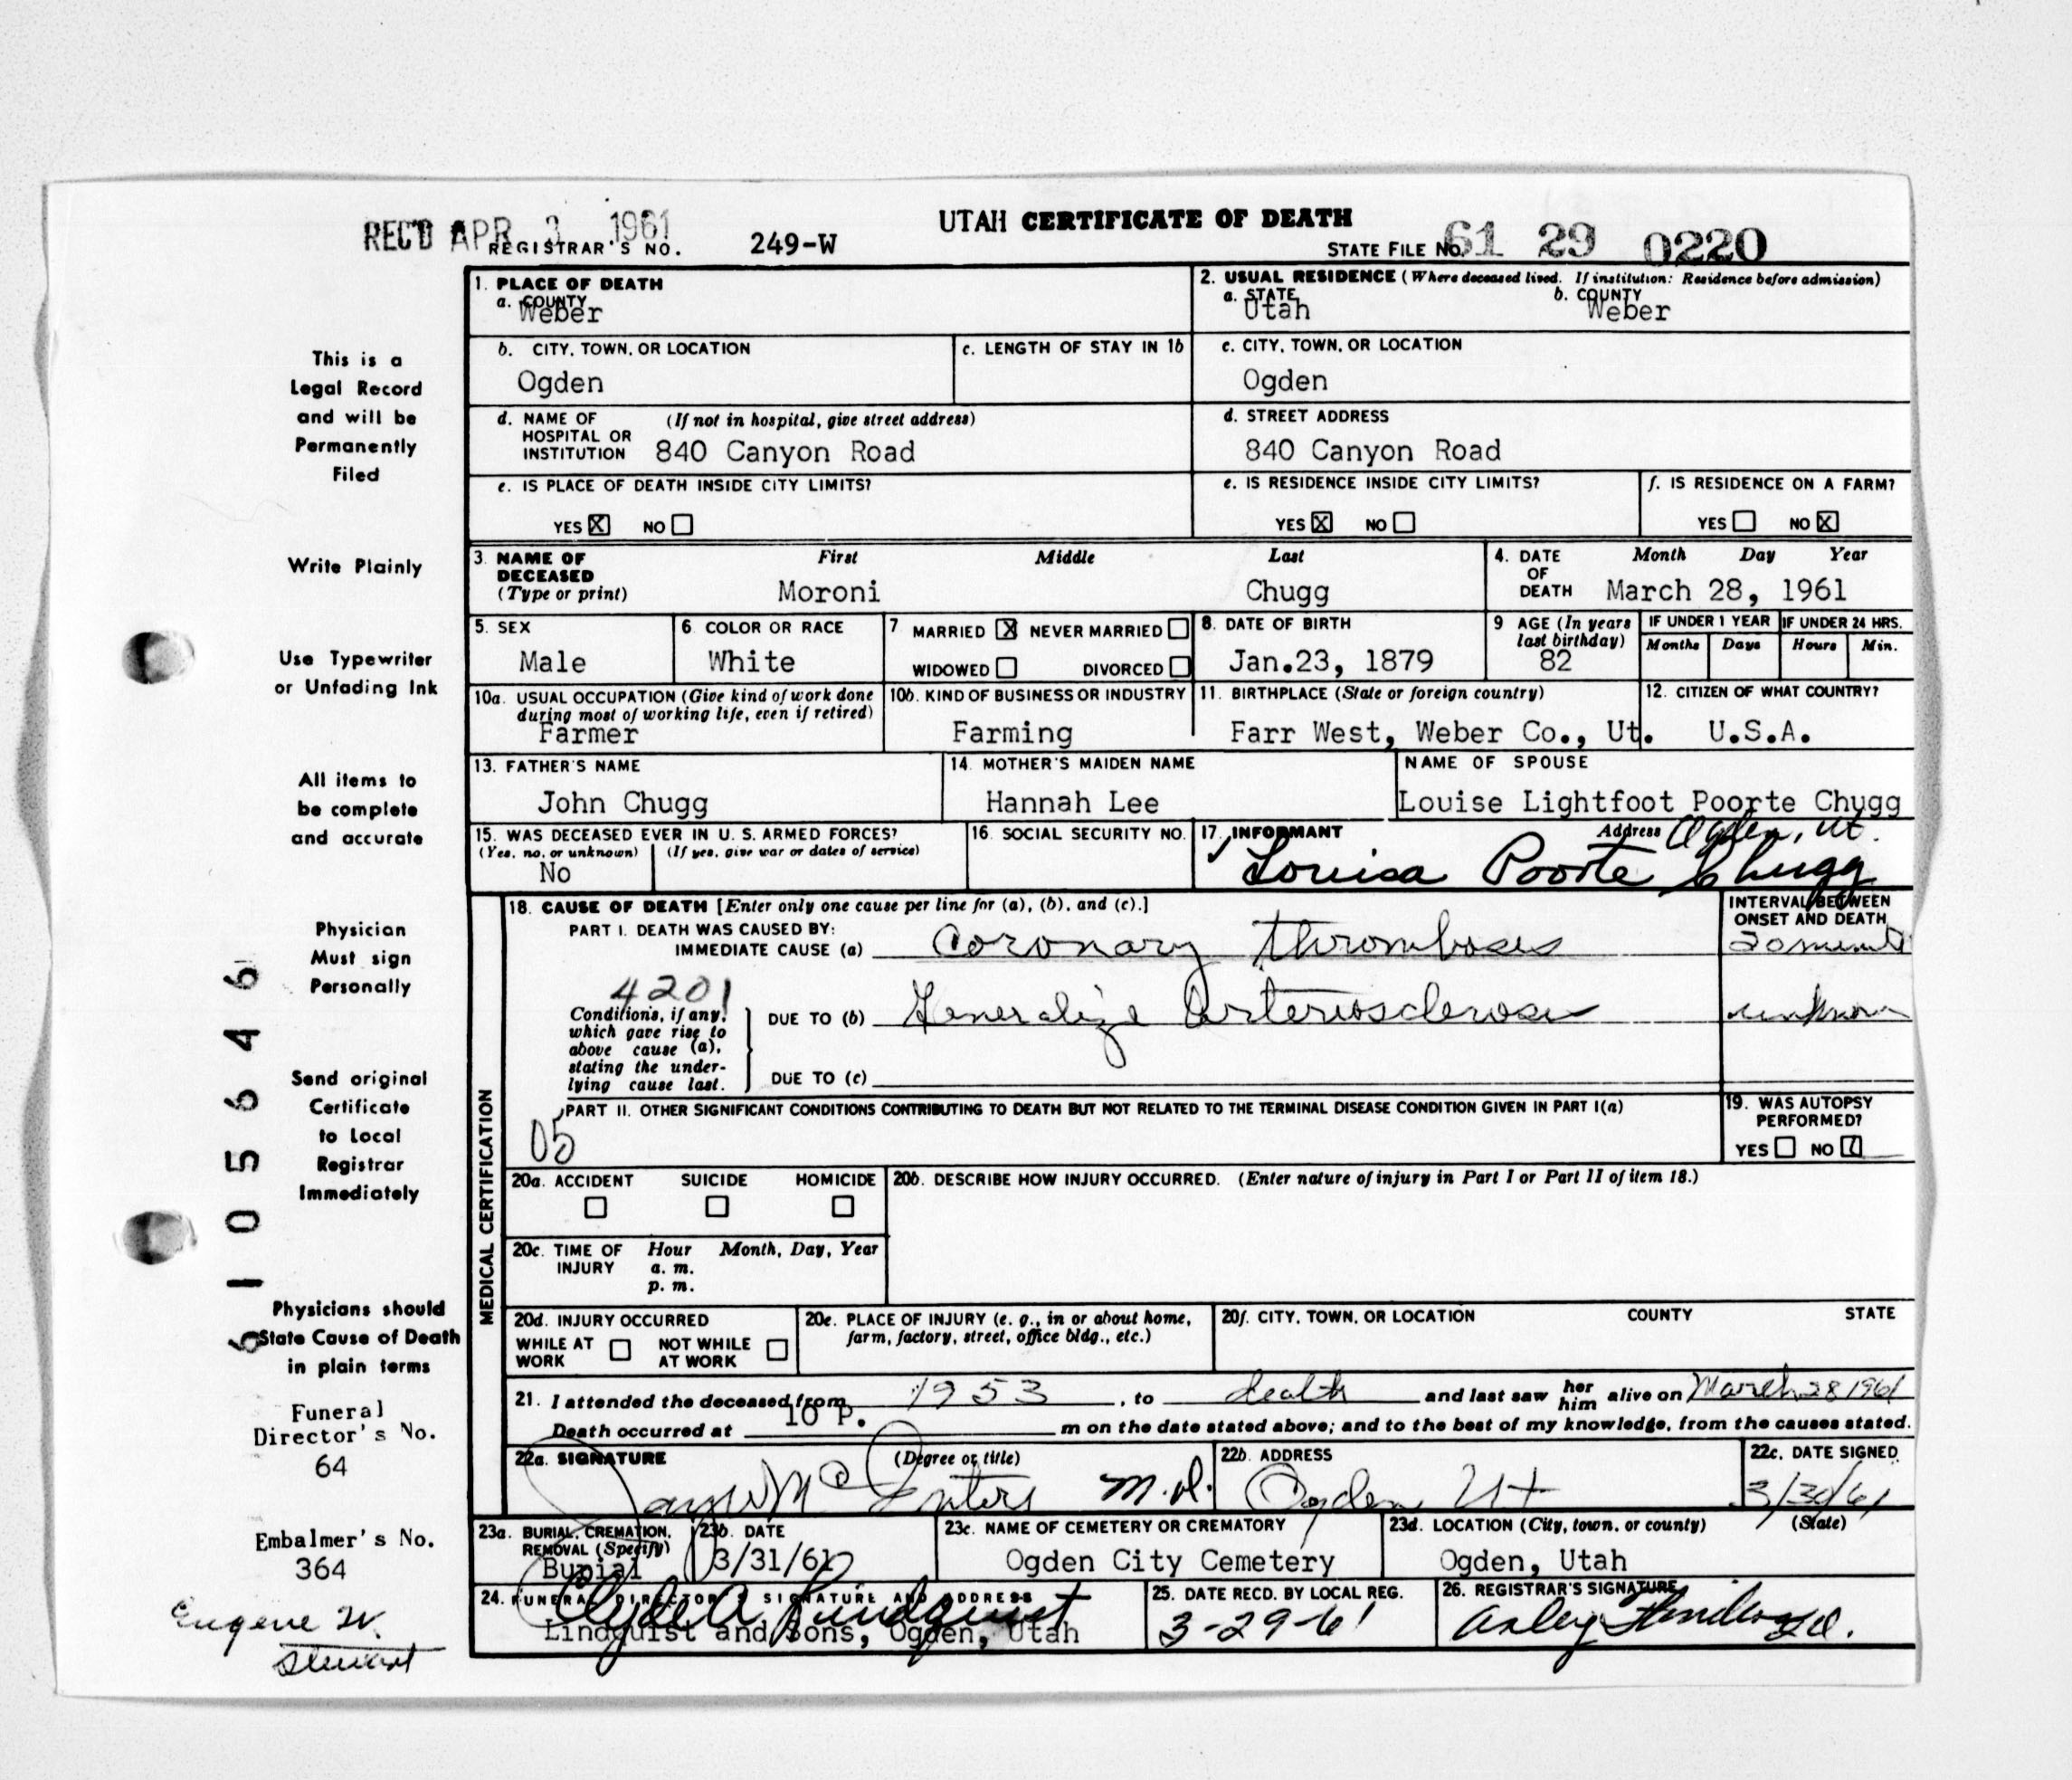 UTAH CERTIFICATE OF DEATH
REC'D APR 3 1961
REGISTRAR'S NO. 249-W
STATE FILE NO. 61 29 0220
1. PLACE OF DEATH
a. COUNTY
Weber
2. USUAL RESIDENCE (Where deceased lived. If institution: Residence before admission)
a. STATE b. COUNTY
Utah Weber
b. CITY, TOWN, OR LOCATION
Ogden
c. LENGTH OF STAY IN 1b
c. CITY, TOWN, OR LOCATION
Ogden
d. NAME OF (If not in hospital, give street address)
HOSPITAL OR
INSTITUTION 840 Canyon Road
d. STREET ADDRESS
840 Canyon Road
e. IS PLACE OF DEATH INSIDE CITY LIMITS?
YES X NO
e. IS RESIDENCE INSIDE CITY LIMITS?
YES X NO
f. IS RESIDENCE ON A FARM?
YES NO X
3. NAME OF First Middle Last
DECEASED
(Type or print) Moroni Chugg
4. DATE Month Day Year
OF
DEATH March 28, 1961
5. SEX
Male
6. COLOR OR RACE
White
7 MARRIED X NEVER MARRIED
WIDOWED DIVORCED
8. DATE OF BIRTH
Jan.23, 1879
9 AGE (In years
last birthday)
82
IF UNDER 1 YEAR
Months Days
IF UNDER 24 HRS.
Hours Min.
10a. USUAL OCCUPATION (Give kind of work done
during most of working life, even if retired)
Farmer
10b. KIND OF BUSINESS OR INDUSTRY
Farming
11. BIRTHPLACE (State or foreign country)
Farr West, Weber Co., Ut.
12. CITIZEN OF WHAT COUNTRY?
U.S.A.
13. FATHER'S NAME
John Chugg
14. MOTHER'S MAIDEN NAME
Hannah Lee
NAME OF SPOUSE
Louise Lightfoot Poorte Chugg
15. WAS DECEASED EVER IN U. S. ARMED FORCES?
(Yes, no, or unknown) (If yes, give war or dates of service)
No
16. SOCIAL SECURITY NO.
17. INFORMANT Address Ogden, Ut.
Louisa Poorte Chugg
MEDICAL CERTIFICATION
18. CAUSE OF DEATH [Enter only one cause per line for (a), (b), and (c).]
PART I. DEATH WAS CAUSED BY:
IMMEDIATE CAUSE (a) Coronary thromboses
INTERVAL BETWEEN
ONSET AND DEATH
4201
Conditions, if any,
which gave rise to
above cause (a),
stating the under-
lying cause last.
DUE TO (b) Generalize Arteriosclerosis
unknown
DUE TO (c)
PART II. OTHER SIGNIFICANT CONDITIONS CONTRIBUTING TO DEATH BUT NOT RELATED TO THE TERMINAL DISEASE CONDITION GIVEN IN PART I(a)
05
19. WAS AUTOPSY
PERFORMED?
YES NO
20a. ACCIDENT SUICIDE HOMICIDE
20b. DESCRIBE HOW INJURY OCCURRED. (Enter nature of injury in Part I or Part II of item 18.)
20c. TIME OF Hour Month, Day, Year
INJURY a. m.
p. m.
20d. INJURY OCCURRED
WHILE AT NOT WHILE
WORK AT WORK
20e. PLACE OF INJURY (e. g., in or about home,
farm, factory, street, office bldg., etc.)
20f. CITY, TOWN, OR LOCATION COUNTY STATE
21. I attended the deceased from 1953, to death and last saw her him alive on March 28 1961
Death occurred at 10 P. m on the date stated above; and to the best of my knowledge, from the causes stated.
22a. SIGNATURE (Degree or title)
M.D.
22b. ADDRESS
Ogden Ut
22c. DATE SIGNED
3/30/61
23a. BURIAL, CREMATION,
REMOVAL (Specify)
Burial
23b. DATE
3/31/61
23c. NAME OF CEMETERY OR CREMATORY
Ogden City Cemetery
23d. LOCATION (City, town, or county) (State)
Ogden, Utah
24. FUNERAL DIRECTOR'S SIGNATURE AND ADDRESS
Clyde A Lindquist
Lindquist and Sons, Ogden, Utah
25. DATE RECD. BY LOCAL REG.
3-29-61
26. REGISTRAR'S SIGNATURE
This is a
Legal Record
and will be
Permanently
Filed
Write Plainly
Use Typewriter
or Unfading Ink
All items to
be complete
and accurate
Physician
Must sign
Personally
Send original
Certificate
to Local
Registrar
Immediately
Physicians should
State Cause of Death
in plain terms
6 1 0 5 6 4 6
Funeral
Director's No.
64
Embalmer's No.
364
Eugene W.
Stewart